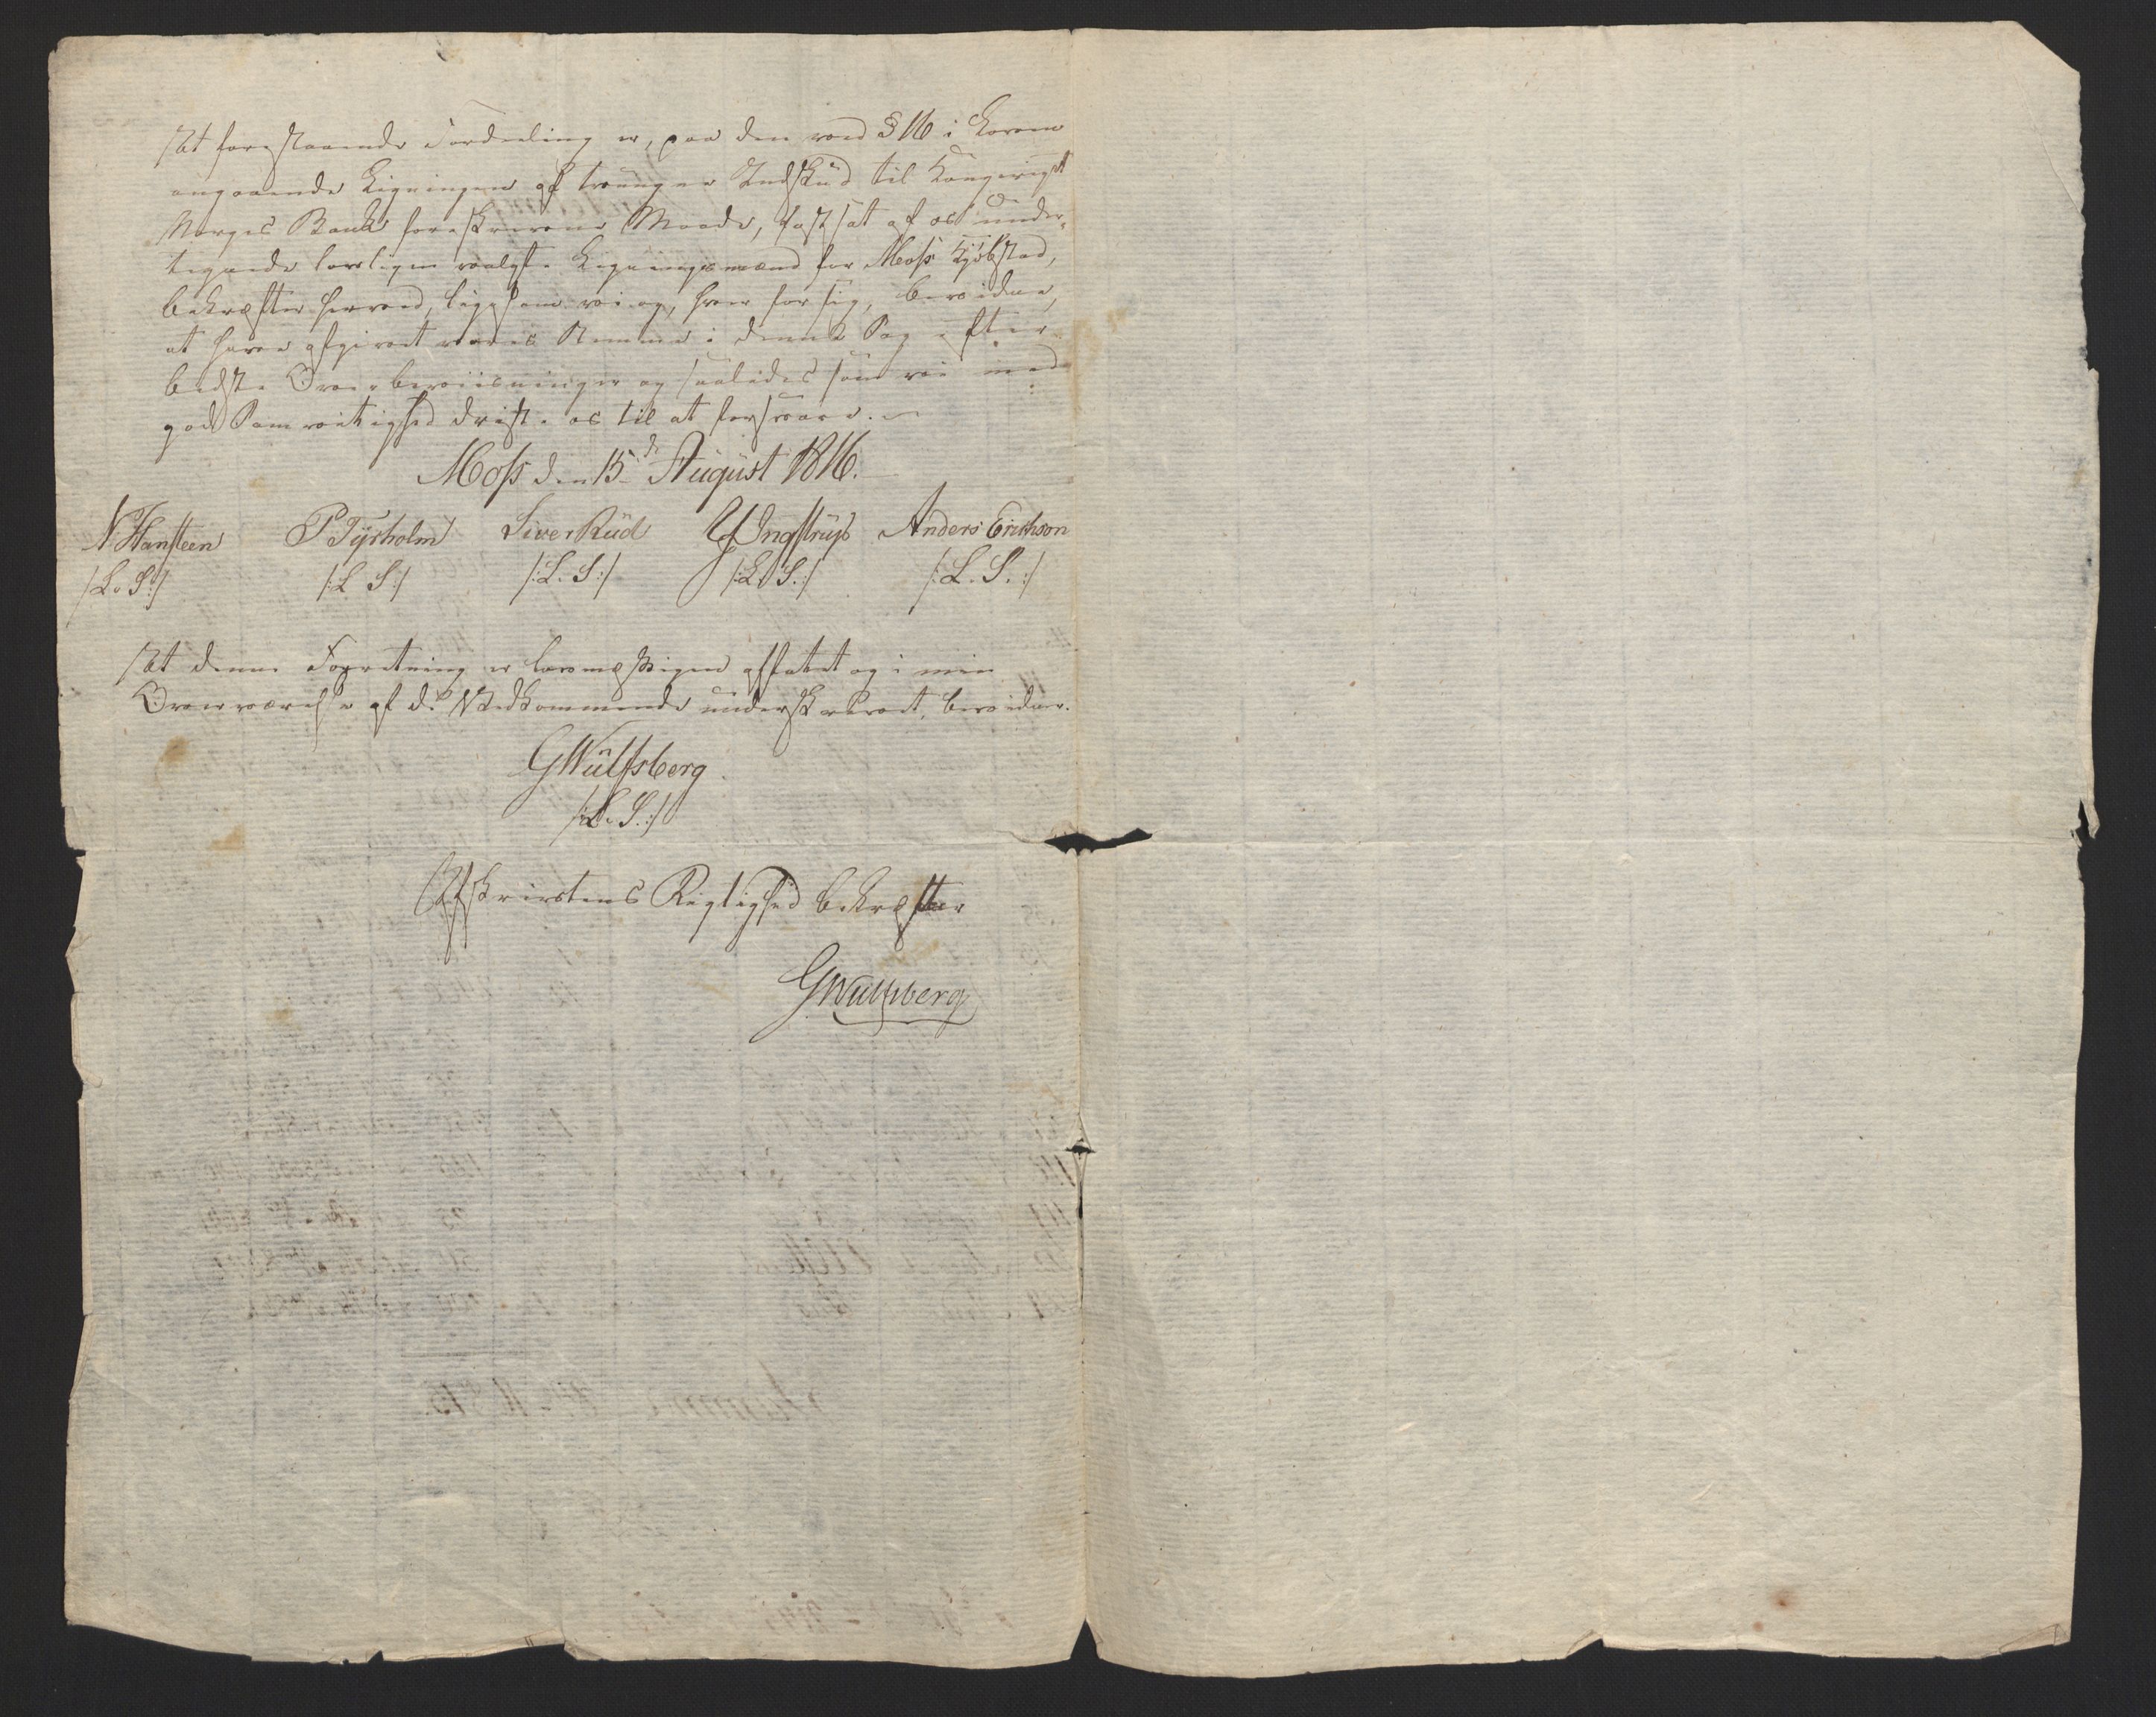 At forestaaende Fordeeling er, paa den ved § 16 i Loven
angaaende Ligningen af tvungen Indskud til Kongeriget
Norges Bank foreskrevne Maade, fastsat af os under-
tegnede lovligen valgte Ligningsmænd for Moss Kjøbstad,
bekræfter herved, ligesom vi og, hver for sig, bevidne,
at have afgivet vores Stemme i denne Sag efter
bedste Overbeviisninger og saaledes som vi med
god Samvittighed driste os til at forsvare.
Moss den 15de August 1816.
N Hansteen P Tyrholm Siver Rüd Y Ingstrup Anders Erichson
/:L. S:/ /:L S:/ /:L. S:/ /:L. S.:/ /:L. S.:/
At denne Forretning er lovmæssigen affattet og i min
Overværelse af de Vedkommende underskrevet, bevidner.
G Wulfsberg
/:L. S.:/
Afskrivtens Rigtighed bekræfter
G Wulfsberg